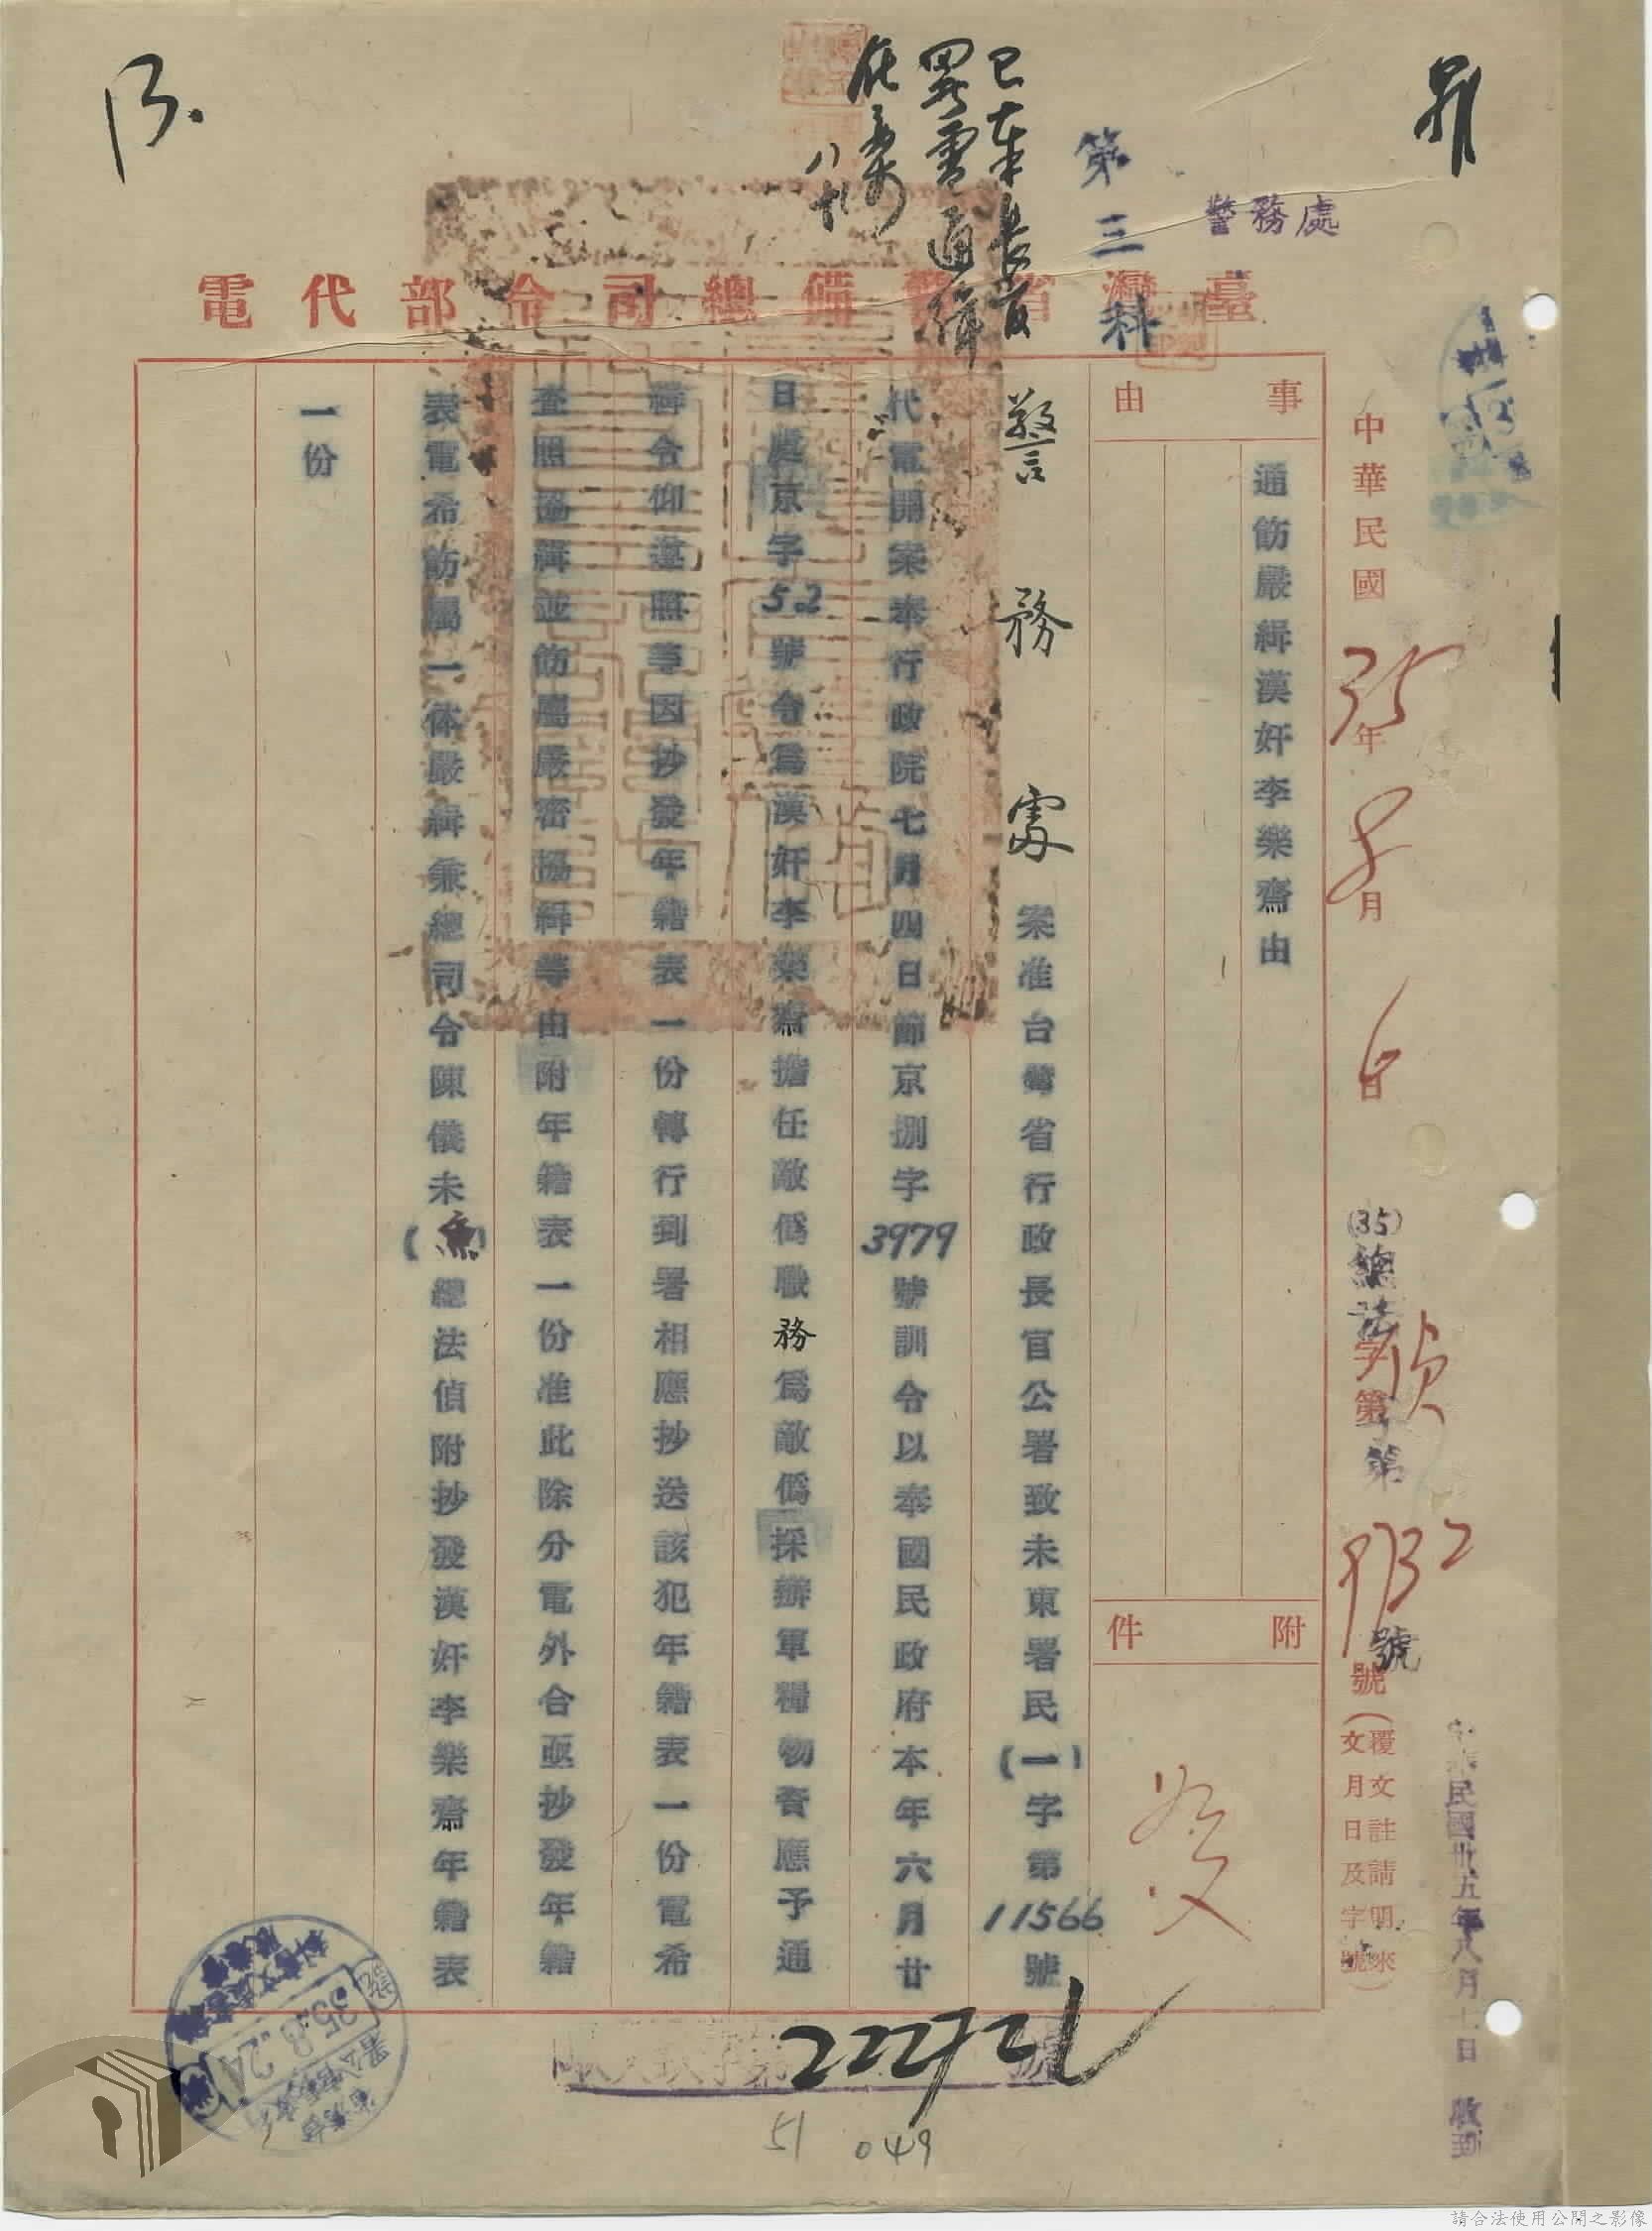 警務處
第三科
已奉長官
臺灣省警備總司令部代電
中華民國35年8月 日
(35)總法字第
9132號
號(覆文請註明來文月日及字號)
中華民國卅五年八月十 日 收到
事由
通飭嚴緝漢奸李樂齋由
附件
警務處 案准台灣省行政長官公署致未東署民(一)字第11566號
代電開案奉行政院七月四日節京捌字3979號訓令以奉國民政府本年六月廿
日處京字52號令為漢奸李樂齋擔任敵偽職務為敵偽採辦軍糧物資應予通
緝令仰遵照等因抄發年籍表一份轉行到署相應抄送該犯年籍表一份電希
查照協緝並飭屬嚴密協緝等由附年籍表一份准此除分電外合亟抄發年籍
表電希飭屬一体嚴緝兼總司令陳儀未( )總法偵附抄發漢奸李樂齋年籍表
一份
35.8.24
51
049
請合法使用公開之影像